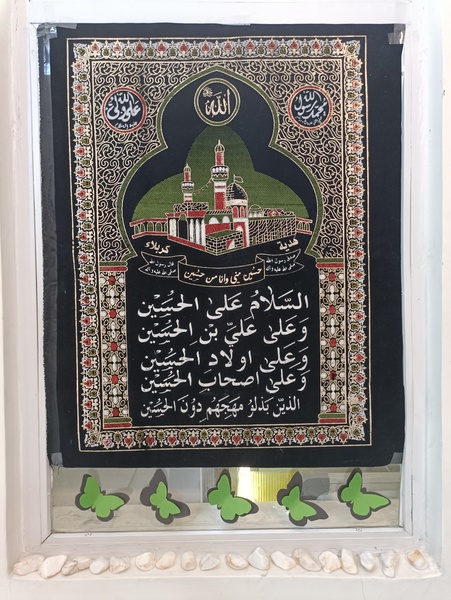 الله
محمد رسول الله
علي ولي الله
هدية كربلاء
قال رسول الله
صلى الله عليه واله
حسين مني وانا من حسين
السَّلامُ عَلَى الحُسَيْن
وَعَلى عَليِّ بْنِ الحُسَيْن
وَعَلى اولادِ الحُسَيْن
وَعَلى اصحابِ الحُسَيْن
الذّينَ بَذَلُو مُهَجَهُم دُونَ الحُسَيْن